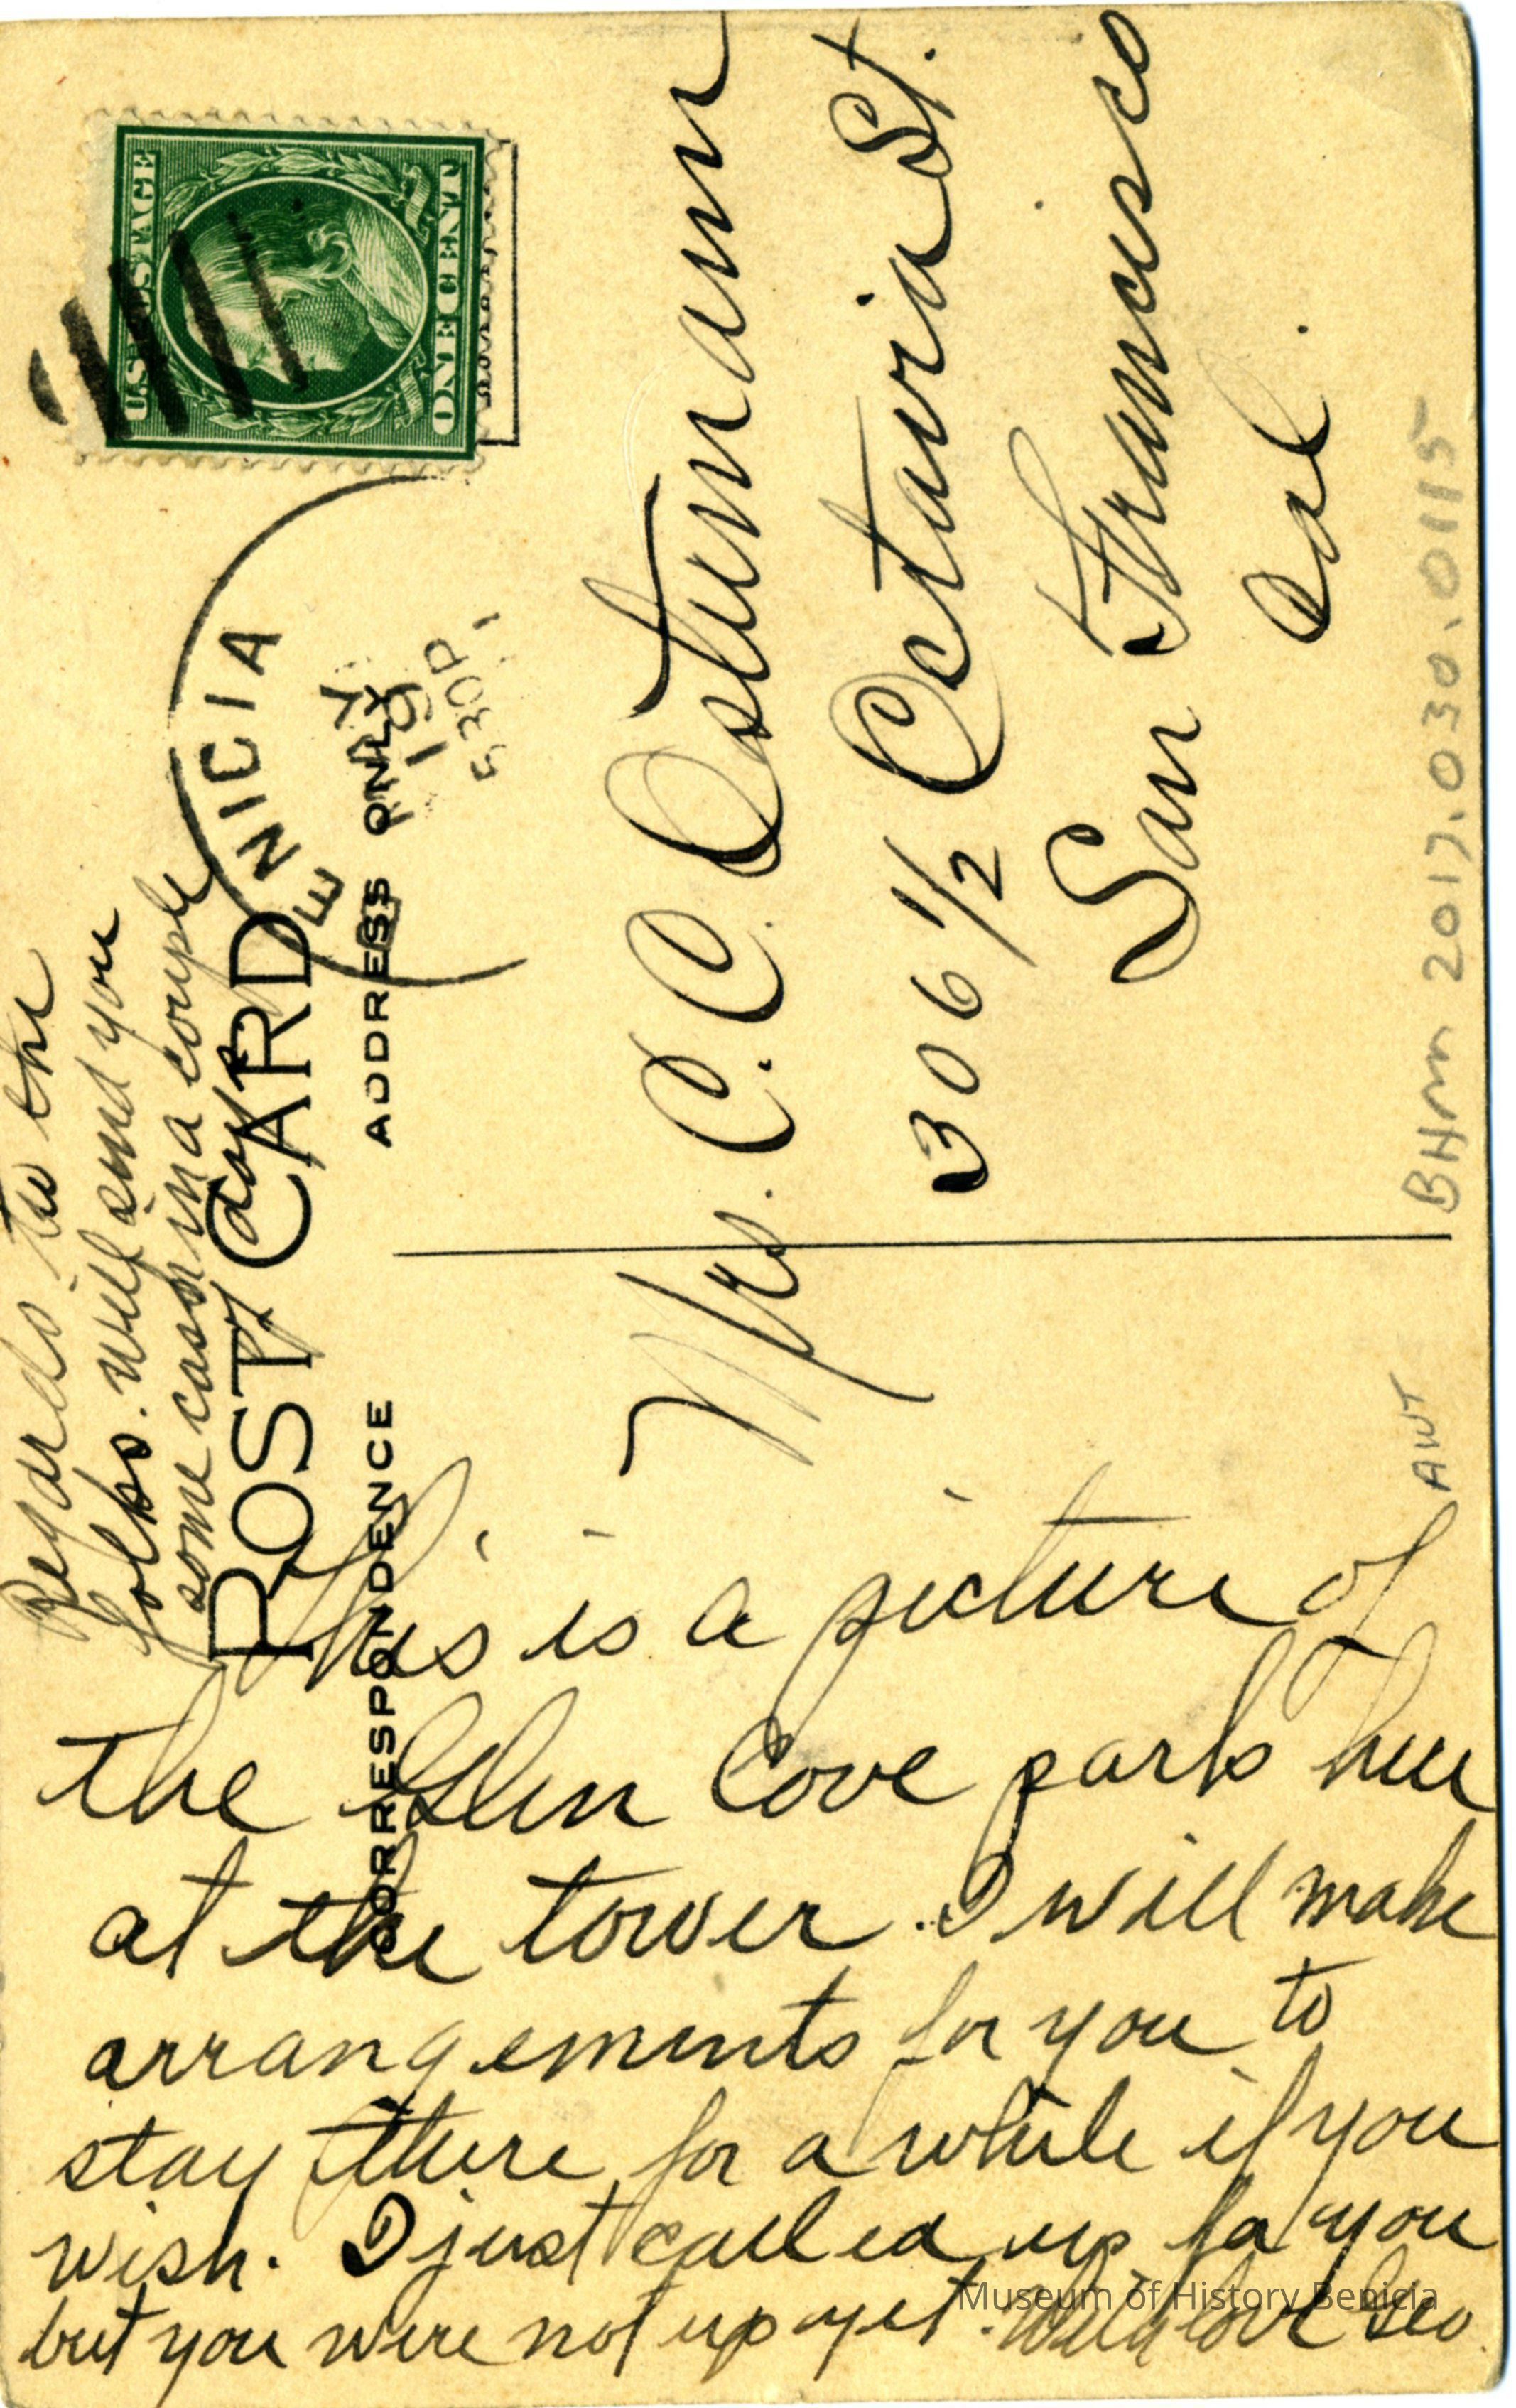 Regards to the
folks. will send you
some cash in a couple
days
POST CARD
CORRESPONDENCE
ADDRESS ONLY
This is a picture of
the Glen Cove park here
at the tower. I will make
arrangements for you to
stay there for a while if you
wish. I just called up for you
but you were not up yet. With love Geo
U.S. POSTAGE
ONE CENT
BENICIA
MAY
19
530P
Mrs. C. C. Ostumann
306 1/2 Octavia St.
San Francisco
Cal.
AWT
BHM 2017.030.0115
Museum of History Benicia